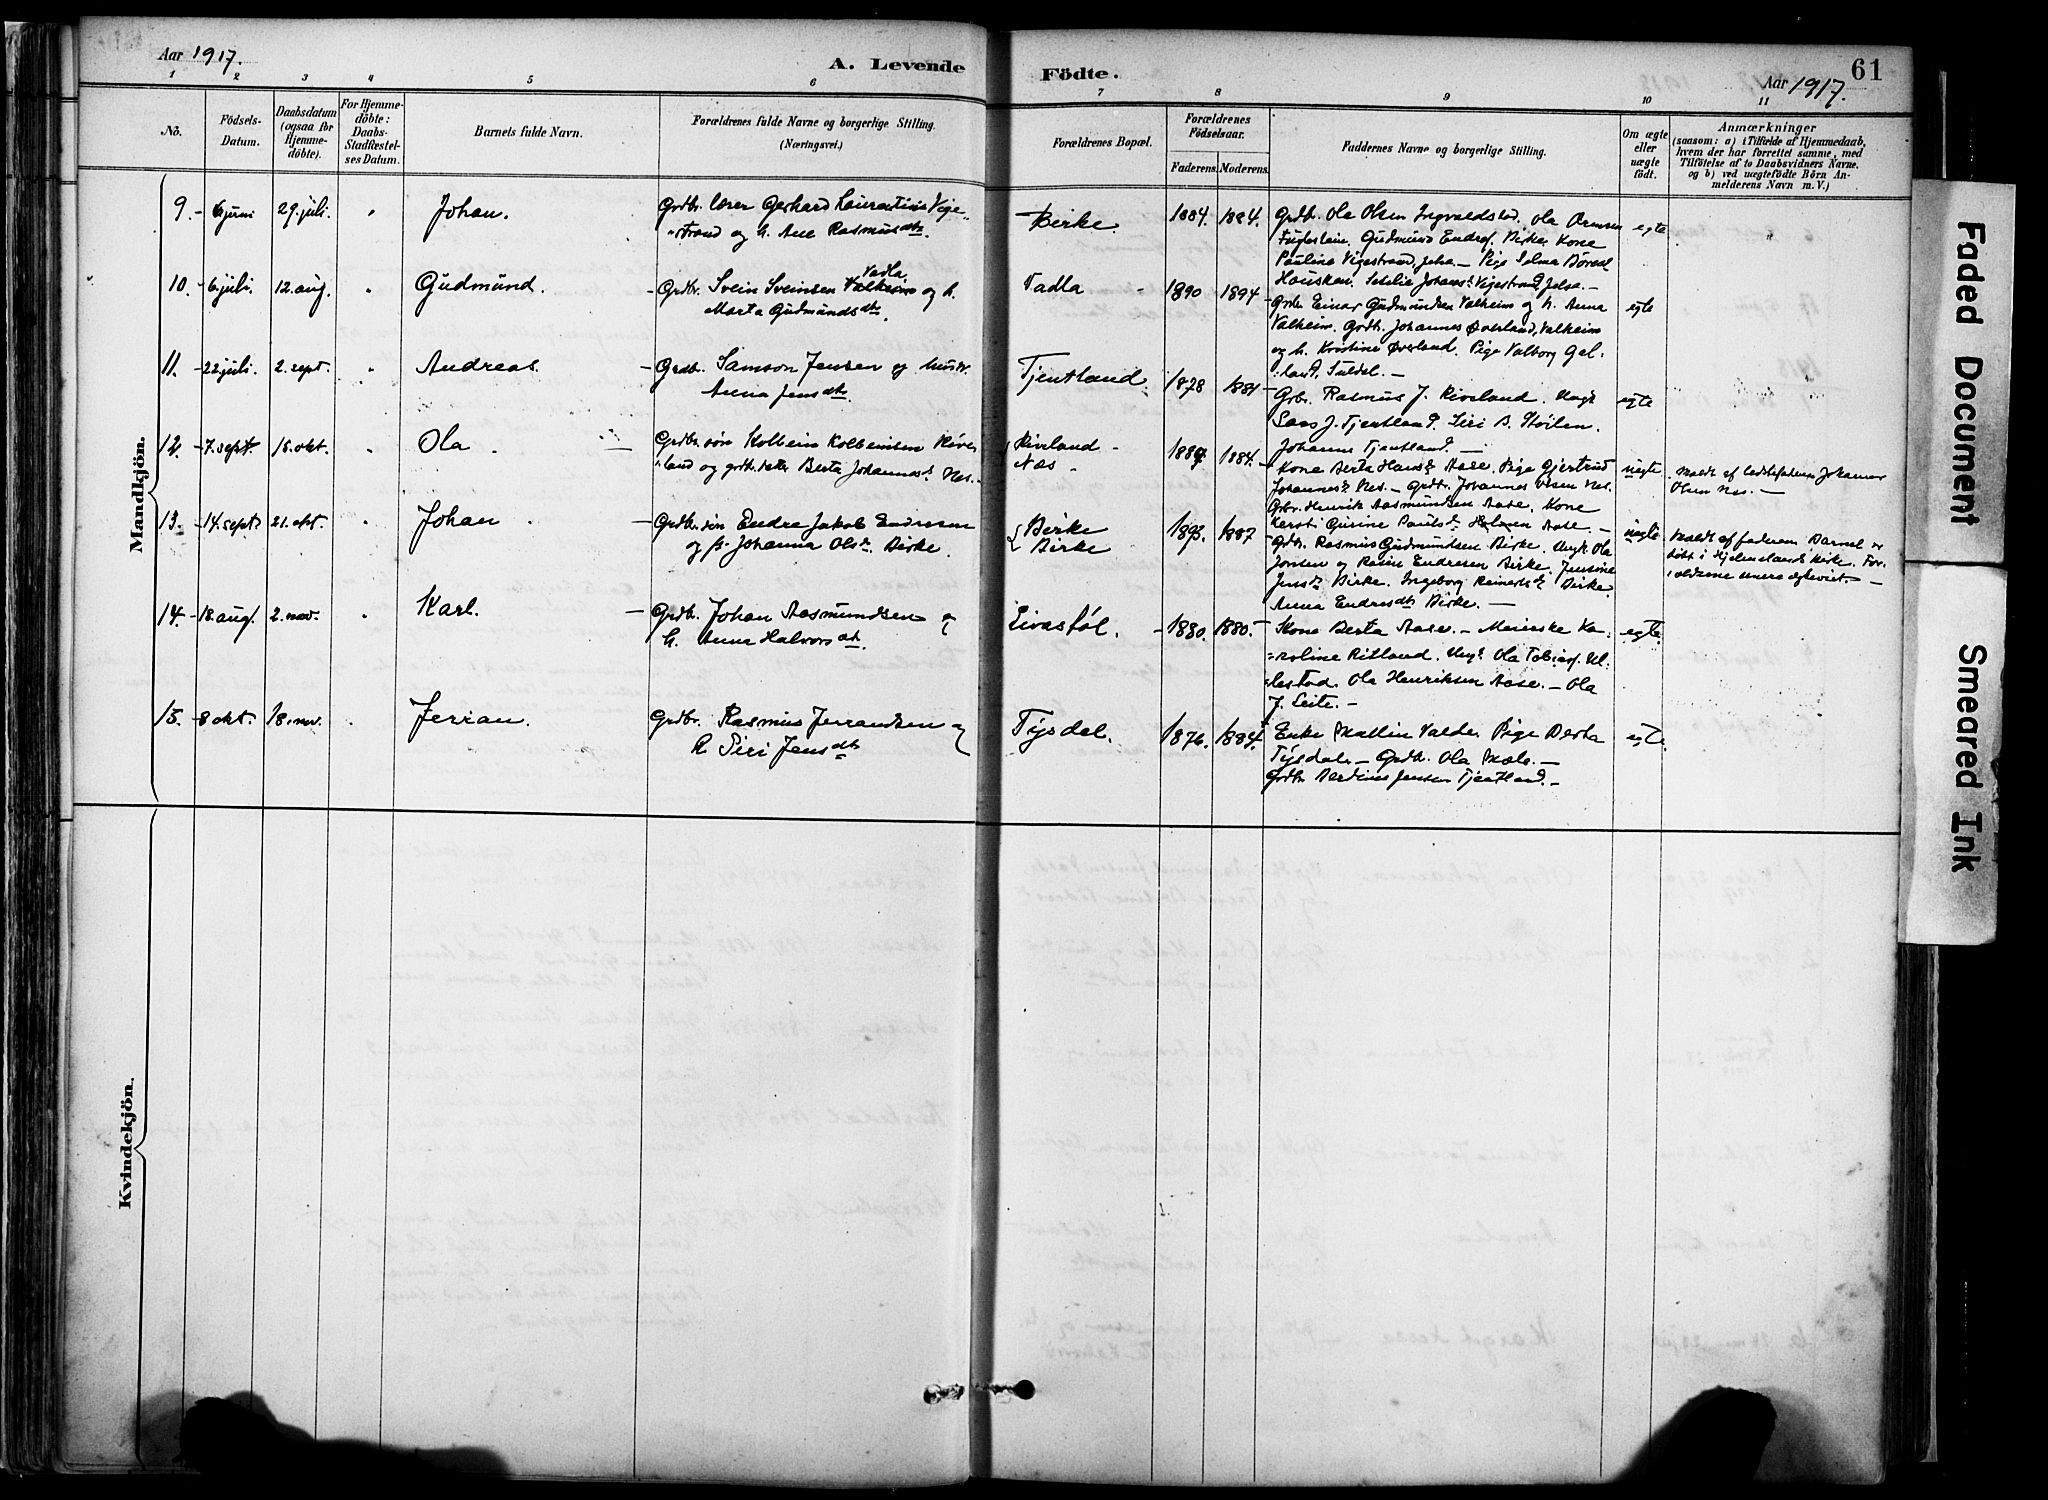 Aar 1917.
A. Levende
Födte.
61
Aar 1917.
1 2 3 4 5 6 7 8 9 10 11
No.
Födsels-
Datum.
Daabsdatum
(ogsaa for
Hjemme-
döbte).
For Hjemme-
döbte:
Daabs-
Stadfæstel-
ses Datum.
Barnets fulde Navn.
Forældrenes fulde Navne og borgerlige Stilling.
(Næringsvei.)
Forældrenes Bopæl.
Forældrenes
Födselsaar.
Faderens. Moderens.
Faddernes Navne og borgerlige Stilling.
Om ægte
eller
uægte
födt.
Anmærkninger
(saasom: a) i Tilfælde af Hjemmedaab,
hvem der har forrettet samme, med
Tilföielse af to Daabsvidners Navne.
og b) ved uægtefödte Börn An-
melderens Navn m. V.)
Mandkjön.
9. 6 juni 29. juli. " Johan.
Grdbr. lærer Gerhard Laurentius Vige-
strand og h. Ane Rasmusdtr.
Birke. 1884. 1884.
Grdbr. Ola Olsen Ingvaldstad. Ola Ormsen
Fuglestein. Gudmund Endres. Birke. Kone
Pauline Vigestrand, Jelsa. Pige Selma
Hausken. Johans. Vigestrand, Jelsa.
egte
10. 6 juli. 12. aug. " Gudmund.
Grdbr. Svein Sveinsen Valheim Vadla og h.
Marta Gudmundsdtr.
Vadla 1890 1894
Grdbr. Einar Gudmundsen Valheim og h. Anna
Valheim. Grdb. Johannes Øverland, Valheim
og h. Kristine Øverland. Pige Valborg Gel-
land, Suldal.
egte
11. 22 juli. 2. sept. " Andreas.
Grdbr. Samson Jensen og hustr.
Anna Jensdtr.
Tjentland. 1878 1884
Grbr. Rasmus J. Riveland. Ungk.
Lars J. Tjentland. Siri B. Støilen.
Johanne Tjentland.
egte
12. 7. sept. 15. okt. " Ola
Grdbr. søn Kolbein Kolbeinsen Rive-
land og grdbr. dater Berta Johannesd. Nes.
Riveland
Næs 1884.
Kone Berta Hansd. Aase. Pige Gjertrud
Johannesd. Nes. Grdbr. Johannes Olsen Nes.
Grbr. Henrik Aasmundsen Aase. Kone
Kersti Gurine Paulsd. Aase.
uegte
Meldt af Johannes
Olsen Nes.
13. 14. sept. 21. okt. " Johan
Grdbr. søn Endre Jakob Endresen
og p. Johanna Olsd. Birke.
Birke
Birke 1893. 1887
Grdb. Rasmus Gudmundsen Birke. Ungk. Ola
Jonsen og Rasm Endresen Birke. Jensine
Jensd. Birke. Ingeborg Reinertsd. Birke.
Anna Endresdtr. Birke.
uegte
Meldt af faderen. Barnet er
døbt i Hjelmelands kirke. For-
ældrene senere egteviet.
14. 18. aug. 2. nov. " Karl.
Grdb. Johan Aasmundsen og
h. Anna Halvorsdtr.
Eivastøl. 1880. 1880.
Kone Berta Aase. Meierske Ka-
roline Ritland. Ungk. Ola Tobias. Ul-
lestad. Ola Henriksen Aase. Ola
J. Leite.
egte.
15. 8 okt. 18. nov. " Jerran.
Grdbr. Rasmus Jerrandsen og
h. Siri Jensdtr
Tysdal. 1876. 1884.
Enke Mallin Valde. Pige Berta
Tysdal. Grdb. Ola Mæle.
Grdbr. Berdines Jensen Tjentland.
egte.
Kvindekjön.
Faded Document
Smeared Ink